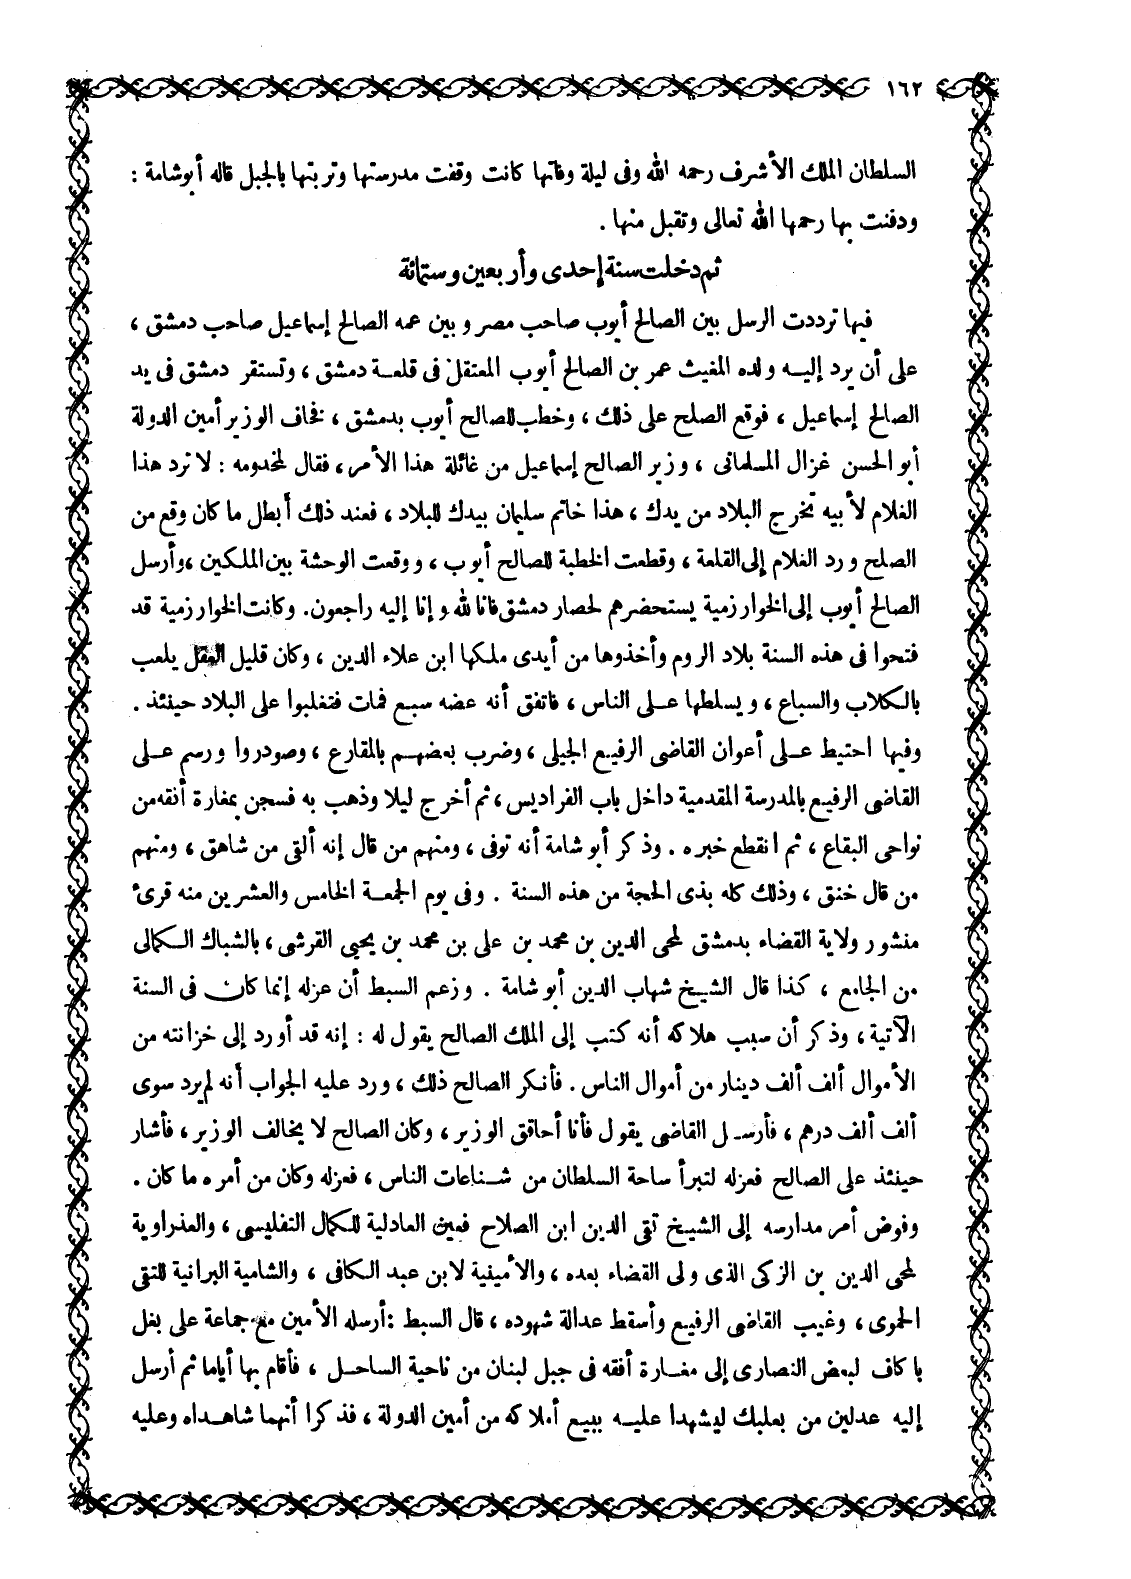 ١٦٢
السلطان الملك الأشرف رحمه الله وفى ليلة وفاتها كانت وقفت مدرستها وتربتها بالجبل قاله أبوشامة :
ودفنت بها رحمها الله تعالى وتقبل منها .
ثم دخلت سنة إحدى وأربعين وستمائة
فيها ترددت الرسل بين الصالح أيوب صاحب مصر و بين عمه الصالح إسماعيل صاحب دمشق ،
على أن يرد إليه ولده المغيث عمر بن الصالح أيوب المعتقل فى قلعة دمشق ، وتستقر دمشق فى يد
الصالح إسماعيل ، فوقع الصلح على ذلك ، وخطب للصالح أيوب بدمشق ، فخاف الوزير أمين الدولة
أبو الحسن غزال المسلمانى ، وزير الصالح إسماعيل من غائلة هذا الأمر ، فقال لمخدومه : لا ترد هذا
الغلام لأبيه تخرج البلاد من يدك ، هذا خاتم سليمان بيدك للبلاد ، فعند ذلك أبطل ما كان وقع من
الصلح ورد الغلام إلى القلعة ، وقطعت الخطبة للصالح أيوب ، ووقعت الوحشة بين الملكين ، وأرسل
الصالح أيوب إلى الخوارزمية يستحضرهم لحصار دمشق فانا لله و إنا إليه راجعون. وكانت الخوارزمية قد
فتحوا فى هذه السنة بلاد الروم وأخذوها من أيدى ملكها ابن علاء الدين ، وكان قليل العقل يلعب
بالكلاب والسباع ، ويسلطها على الناس ، فاتفق أنه عضه سبع فمات فتغلبوا على البلاد حينئذ .
وفيها احتيط على أعوان القاضى الرفيع الجيلى ، وضرب بعضهم بالمقارع ، وصودروا ورسم على
القاضى الرفيع بالمدرسة المقدمية داخل باب الفراديس ، ثم أخرج ليلا وذهب به فسجن بمغارة أفقه من
نواحى البقاع ، ثم انقطع خبره . وذكر أبو شامة أنه توفى ، ومنهم من قال إنه ألقى من شاهق ، ومنهم
من قال خنق ، وذلك كله بذى الحجة من هذه السنة . وفى يوم الجمعة الخامس والعشرين منه قرئ
منشور ولاية القضاء بدمشق لمحى الدين بن محمد بن على بن محمد بن يحيى القرشى ، بالشباك الكمالى
من الجامع ، كذا قال الشيخ شهاب الدين أبو شامة . وزعم السبط أن عزله إنما كان فى السنة
الآتية ، وذكر أن سبب هلاكه أنه كتب إلى الملك الصالح يقول له : إنه قد أورد إلى خزانته من
الأموال ألف ألف دينار من أموال الناس . فأنكر الصالح ذلك ، ورد عليه الجواب أنه لم يرد سوى
ألف ألف درهم ، فأرسل القاضى يقول فأنا أحاقق الوزير ، وكان الصالح لا يخالف الوزير ، فأشار
حينئذ على الصالح فعزله لتبرأ ساحة السلطان من شناعات الناس ، فعزله وكان من أمره ما كان .
وفوض أمر مدارسه إلى الشيخ تقى الدين ابن الصلاح فعين العادلية للكمال التفليسى ، والعذراوية
لمحى الدين بن الزكى الذى ولى القضاء بعده ، والأمينية لابن عبد الكافى ، والشامية البرانية للتقى
الحموى ، وغيب القاضى الرفيع وأسقط عدالة شهوده ، قال السبط : أرسله الأمين مع جماعة على بغل
باكاف لبعض النصارى إلى مغارة أفقه فى جبل لبنان من ناحية الساحل ، فأقام بها أياما ثم أرسل
إليه عدلين من بعلبك ليشهدا عليه ببيع أملاكه من أمين الدولة ، فذكرا أنهما شاهداه وعليه